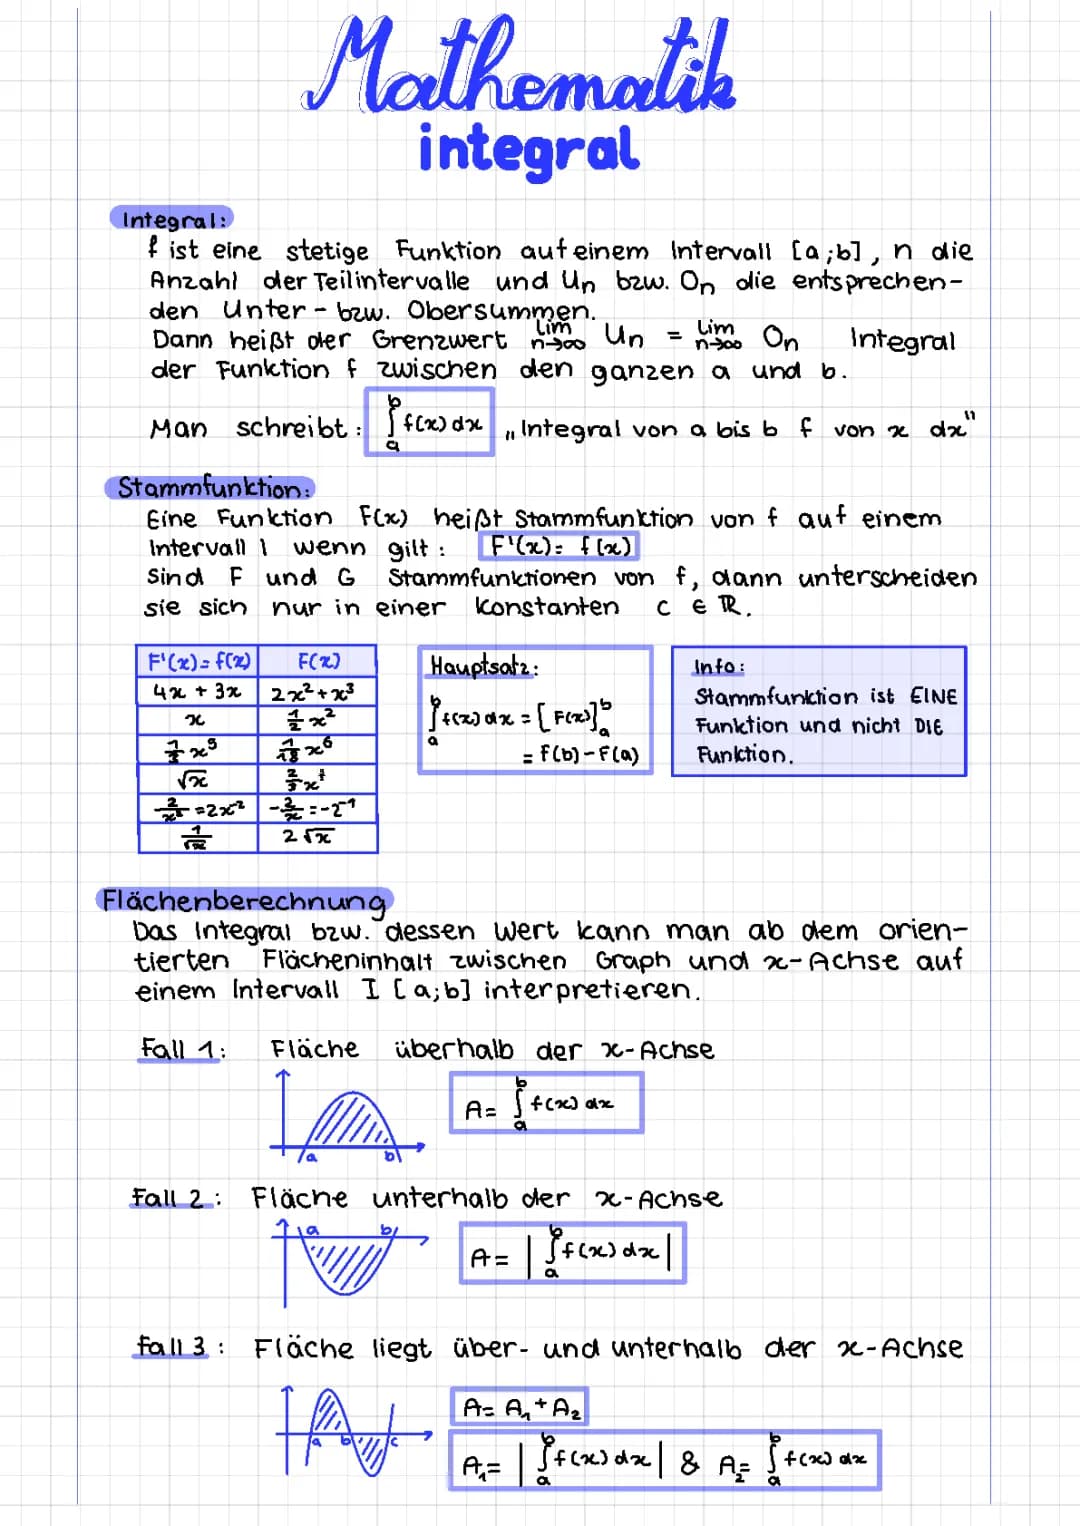 Mathematik
integral
Integral:
f ist eine stetige Funktion auf einem Intervall [a;b], n die
Anzahl der Teilintervalle und Un bzw. On die entsprechen-
den Unter- bzw. Obersummen.
Dann heißt der Grenzwert lim n→∞ Un = lim n→∞ On Integral
der Funktion f zwischen den ganzen a und b.
Man schreibt: ∫ₐᵇ f(x) dx „Integral von a bis b f von x dx"
Stammfunktion:
Eine Funktion F(x) heißt Stammfunktion von f auf einem
Intervall I wenn gilt: F'(x) = f(x)
Sind F und G Stammfunktionen von f, dann unterscheiden
sie sich nur in einer Konstanten c ∈ ℝ.
F'(x) = f(x) F(x)
4x + 3x 2x² + x³
x 1/2 x²
1/3 x⁵ 1/18 x⁶
√x
=2x² -2/x = -2⁻¹
1/√x 2√x
Hauptsatz:
∫ₐᵇ f(x) dx = [F(x)]ₐᵇ
= F(b) - F(a)
Info:
Stammfunktion ist EINE
Funktion und nicht DIE
Funktion.
Flächenberechnung
Das Integral bzw. dessen Wert kann man ab dem orien-
tierten Flächeninhalt zwischen Graph und x-Achse auf
einem Intervall I [a;b] interpretieren.
Fall 1: Fläche überhalb der x-Achse
a b
A = ∫ₐᵇ f(x) dx
Fall 2: Fläche unterhalb der x-Achse
a b
A = | ∫ₐᵇ f(x) dx |
Fall 3: Fläche liegt über- und unterhalb der x-Achse
a b c
A = A₁ + A₂
A₁ = | ∫ₐᵇ f(x) dx | & A₂ = ∫ₐᵇ f(x) dx